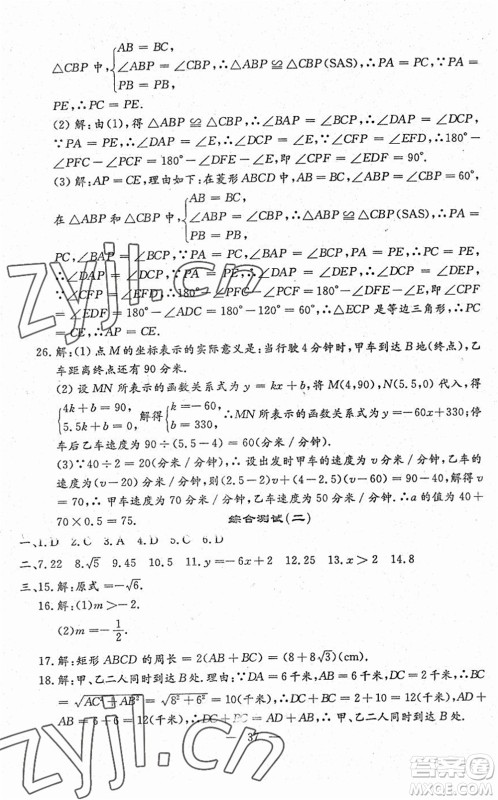 AB = BC,
△CBP 中, ∠ABP = ∠CBP, ∴△ABP ≌ △CBP(SAS), ∴PA = PC, ∵PA =
PB = PB,
PE, ∴PC = PE.
(2)解:由(1),得 △ABP ≌ △CBP, ∴∠BAP = ∠BCP, ∴∠DAP = ∠DCP,
∵PA = PE, ∴∠DAP = ∠E, ∴∠DCP = ∠E, ∵∠CFP = ∠DFE, ∴180° −
∠PFC − ∠PCF = 180° − ∠DFE − ∠E,即 ∠CPF = ∠EDF = 90°.
(3)解:AP = CE,理由如下:在菱形 ABCD 中, ∠ABP = ∠CBP = 60°,
AB = BC,
在 △ABP 和 △CBP 中, ∠ABP = ∠CBP, ∴△ABP ≌ △CBP(SAS), ∴PA =
PB = PB,
PC, ∠BAP = ∠BCP, ∵PA = PE, ∴PC = PE,
∴∠DAP = ∠DCP, ∵PA = PE, ∴∠DAP = ∠DEP, ∴∠DCP = ∠DEP,
∵∠CFP = ∠EFD, ∴180° − ∠PFC − ∠PCF = 180° − ∠DFE − ∠DEP,即 ∠CPF
= ∠EDF = 180° − ∠ADC = 180° − 120° = 60°, ∴△ECP 是等边三角形, ∴PC
= CE, ∴AP = CE.
26. 解:(1)点 M 的坐标表示的实际意义是:当行驶 4 分钟时,甲车到达 B 地(终点),乙
车距离终点还有 90 分米.
(2)设 MN 所表示的函数关系式为 y = kx + b,将 M(4,90),N(5.5,0)代入,得
4k + b = 90, 解得 k = − 60, ∴MN 所表示的函数关系式为 y = −60x + 330;停
5.5k + b = 0, b = 330,
车后乙车速度为 90 ÷ (5.5 − 4) = 60(分米 / 分钟).
(3)∵40 ÷ 2 = 20(分米 / 分钟), ∴设出发时甲车速度为 v 分米 / 分钟,则乙车速
度为(v − 20)分米 / 分钟, ∴(5.5 − 2)v − (5.5 − 2)(v − 20) = 90 − 40,解得 v =
70, ∴甲车速度为 70 分米 / 分钟,乙车速度为 50 分米 / 分钟, ∴a 的值为 40 +
70 × 0.5 = 75.
综合测试(二)
一、1. D 2. C 3. A 4. D 5. C 6. D
二、7. 22 8. √5 9. 45 10. 12 11. y = −6x + 2 12. 30° 13. x > 2 14. 8
三、15. 解:原式 = −√6.
16. 解:(1)m > −2.
(2)m = −1/2.
17. 解:矩形 ABCD 的周长 = 2(AB + BC) = (8 + 8√3)(cm).
18. 解:甲、乙二人同时到达 B 处. 理由如下:∵DA = 6 千米,AC = 8 千米, ∴BC
= √AC² + AB² = √8² + 6² = 10(千米), ∴DC + BC = 2 + 10 = 12(千米), DA
+ AB = 6 + 6 = 12(千米), ∵DC + BC = DA + AB, ∴甲、乙二人同时到达 B 处.
— 37 —
zyjl.cn
zyjl.cn
答案圈
MXQE.COM